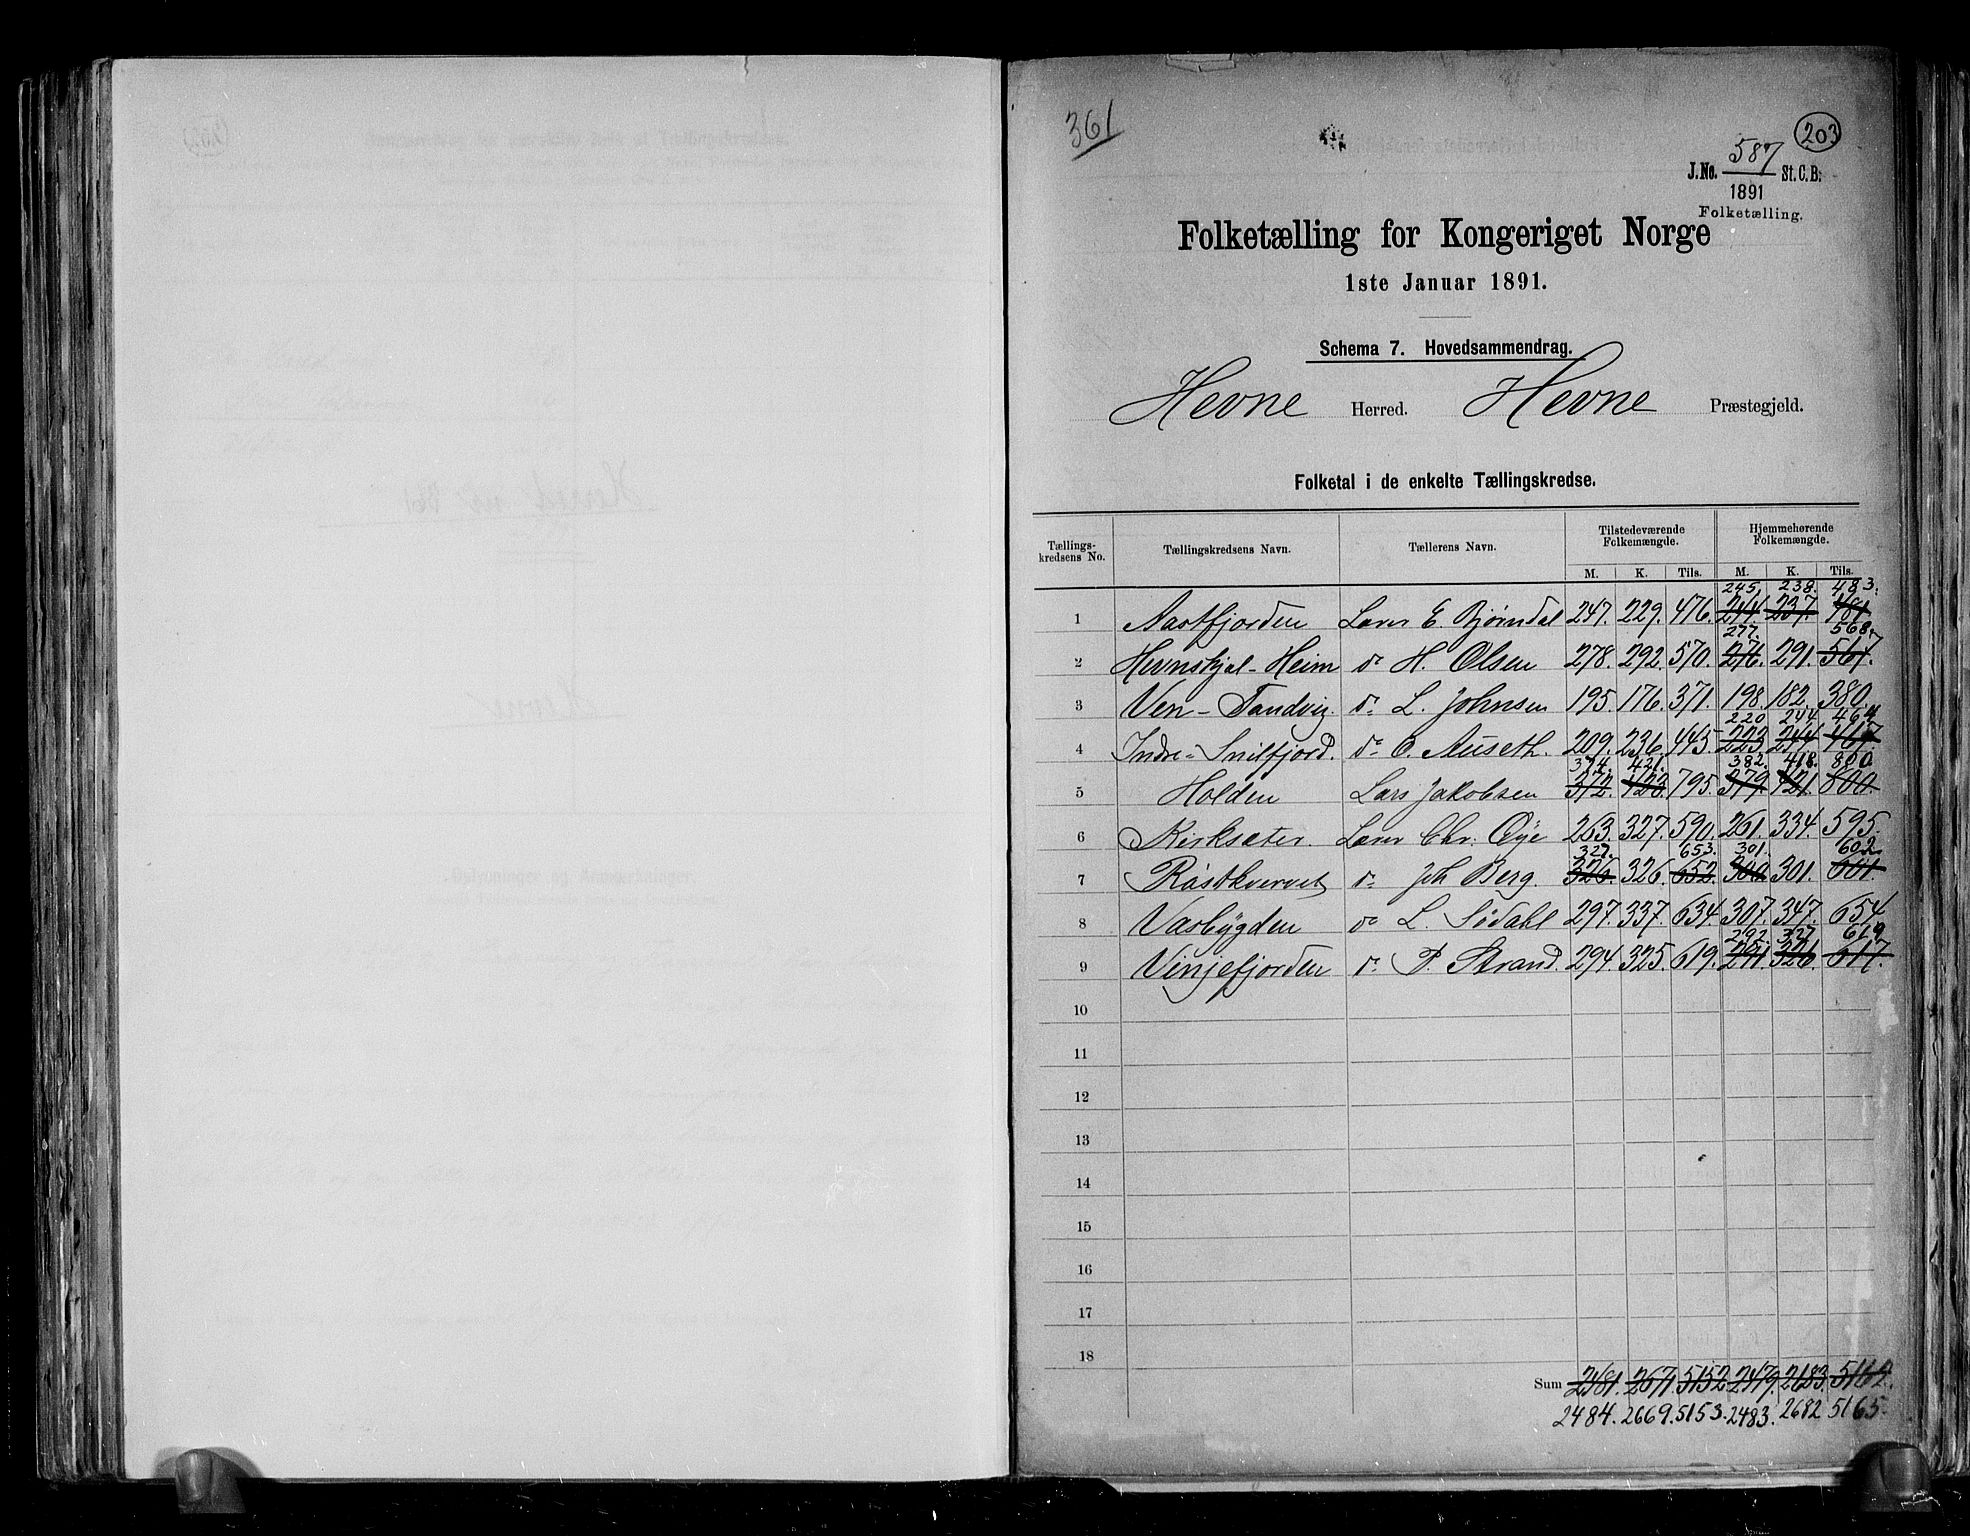 361
203
J.No. 587 St.C.B:
1891
Folketælling.
Folketælling for Kongeriget Norge
1ste Januar 1891.
Schema 7. Hovedsammendrag.
Hevne Herred. Hevne Præstegjeld.
Folketal i de enkelte Tællingskredse.
Tællings-kredsens No. Tællingskredsens Navn. Tællerens Navn. Tilstedeværende Folkemængde. Hjemmehørende Folkemængde.
M. K. Tils. M. K. Tils.
245. 238. 483.
1 Aastfjorden Lærer E. Bjørndal 247. 229. 476. 244. 237. 481.
277. 568.
2 Hevnskjel-Heim do H. Olsen 278. 292. 570. 276. 291. 567.
3 Ven-Tandvig. do L. Johnsen 195. 176. 371. 198. 182. 380.
220 244 464
4 Indre-Snilfjord. do O. Auseth. 209. 236. 445. 223 244. 467.
374. 421. 382. 418. 800.
5 Holden Lars Jakobsen 372. 423. 795. 379. 421. 800
6 Kirksæter. Lærer Chr. Øye 263. 327. 590. 261. 334. 595.
327. 653. 301. 602.
7 Rostkvervet do Joh Berg. 326. 326. 652. 300. 301. 601.
8 Vasbygden do L. Sødahl 297. 337. 634. 307. 347. 654
292. 327. 619
9 Vinjefjorden do P. Strand. 294. 325. 619. 291. 326. 617.
10
11
12
13
14
15
16
17
18
Sum 2481. 2671. 5152 2479. 2683. 5162.
2484. 2669. 5153. 2483. 2682 5165.